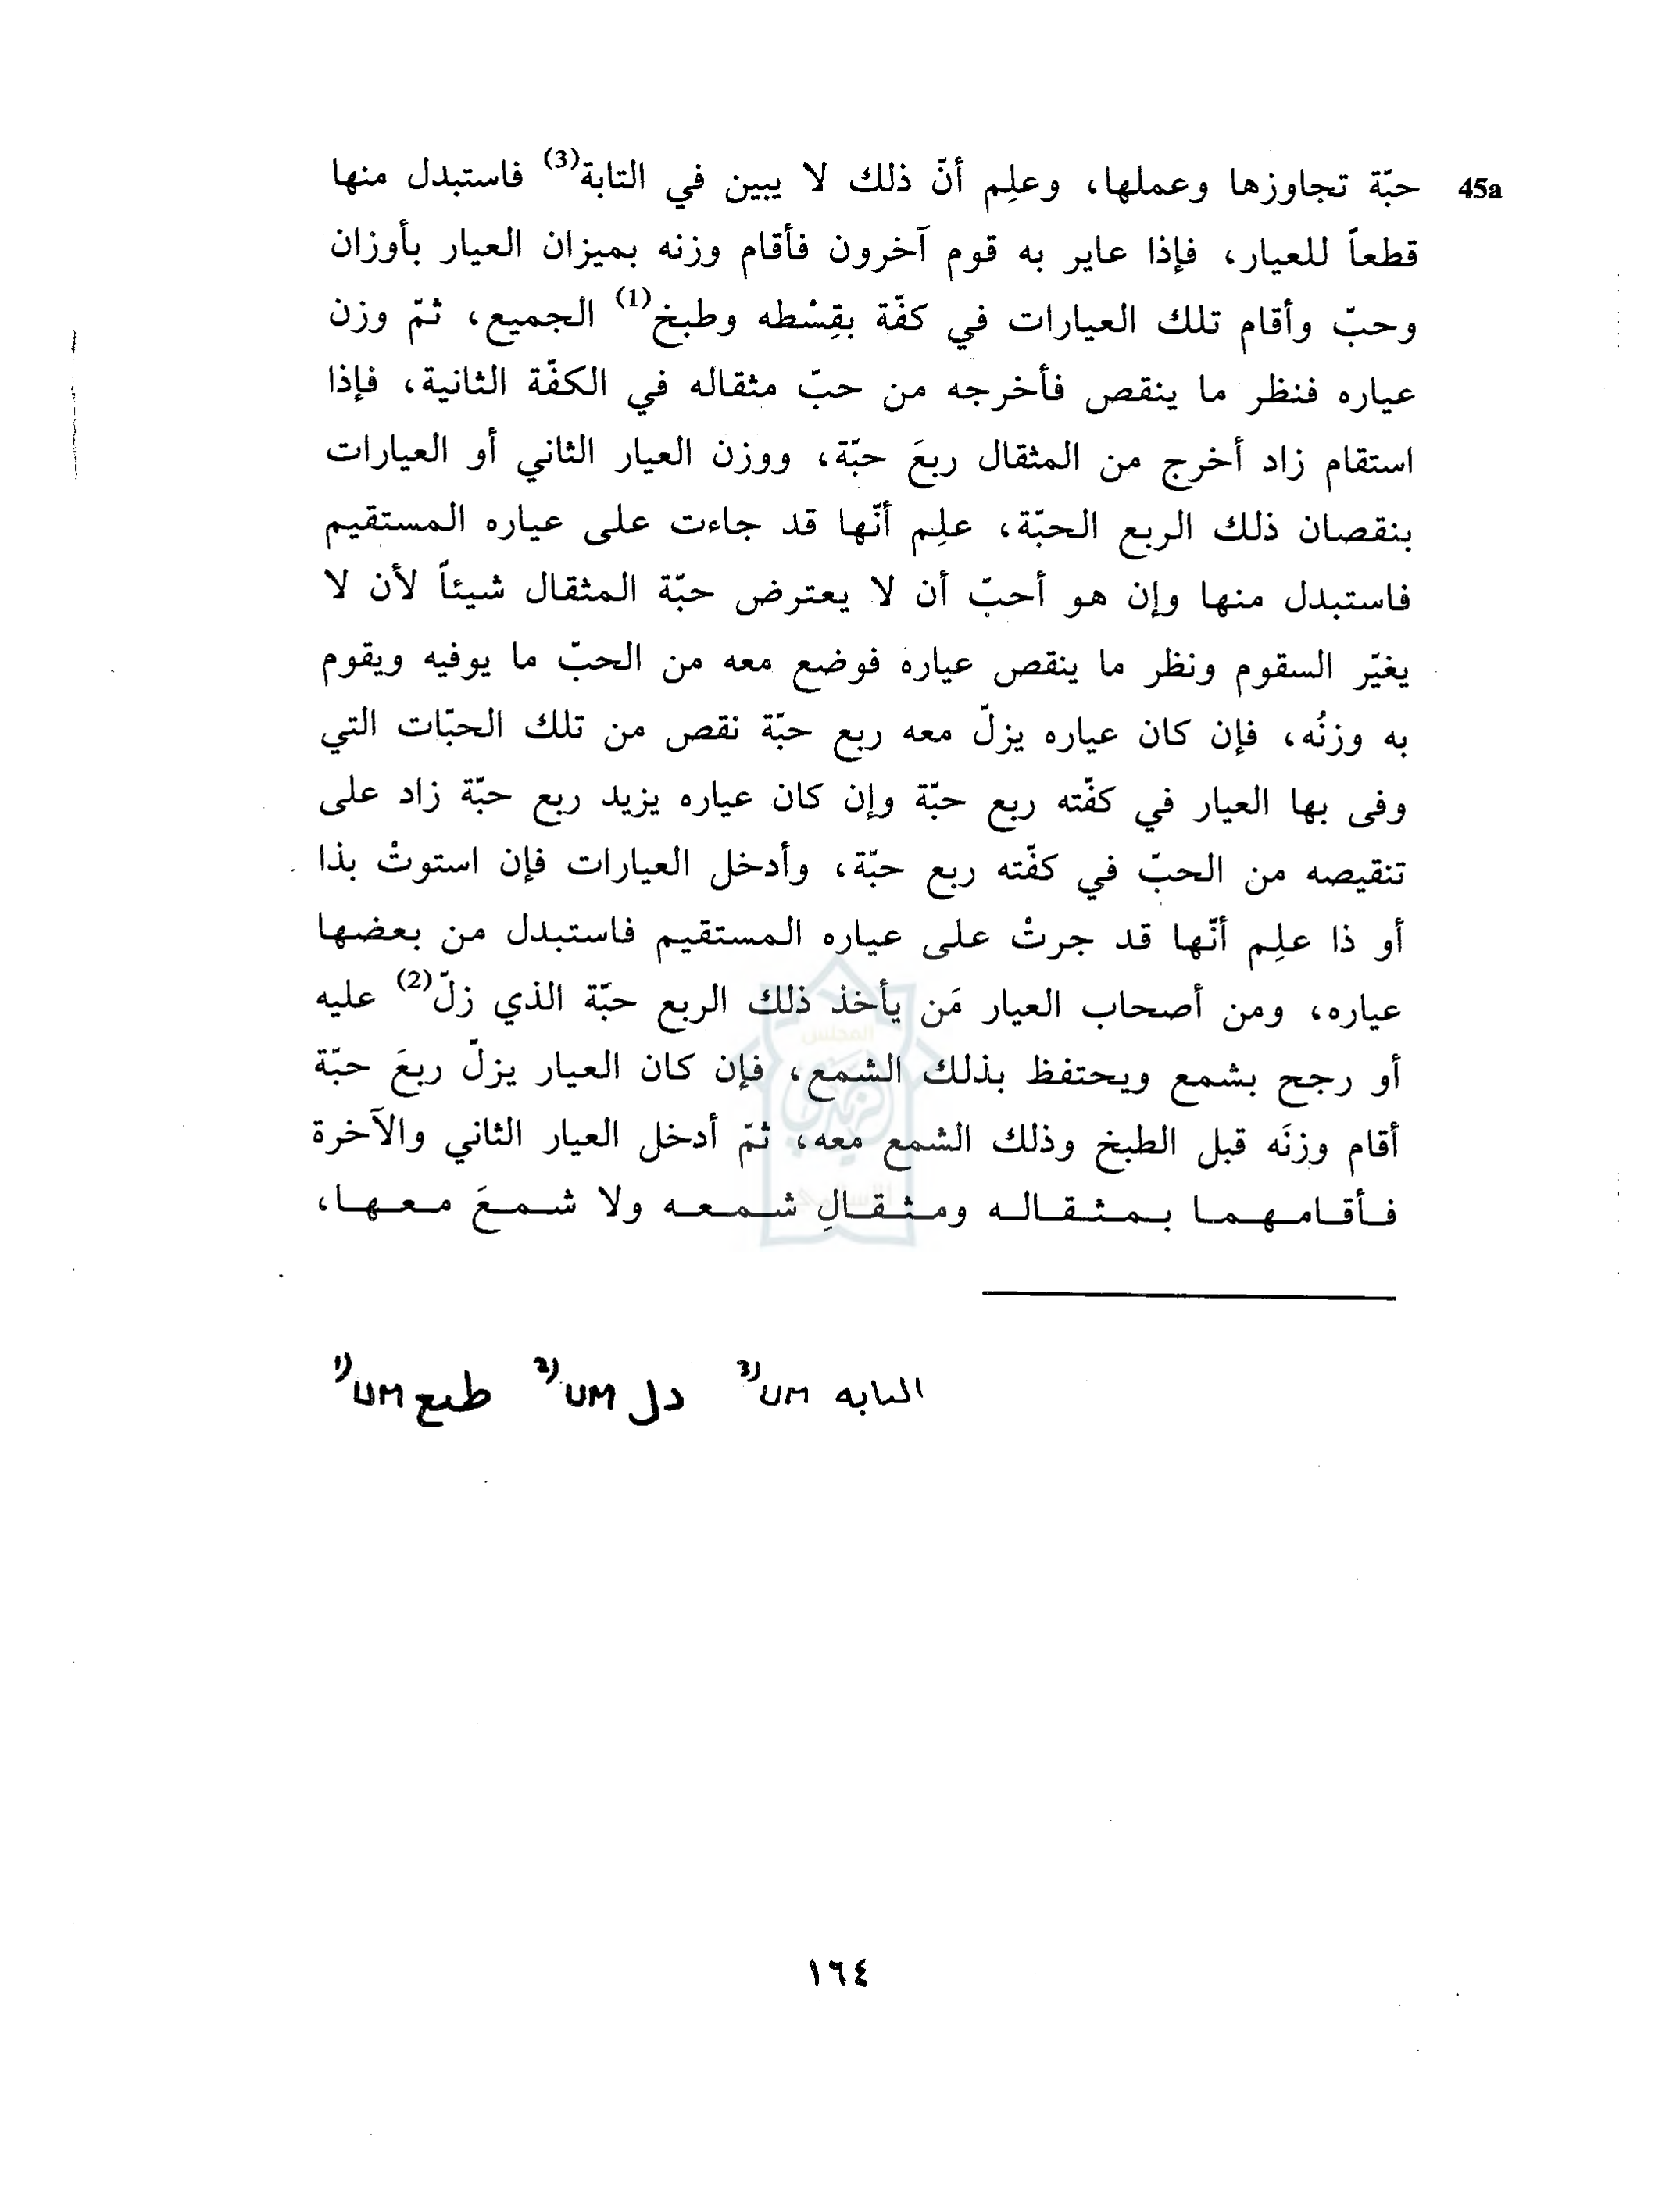 45a حبّة تجاوزها وعملها، وعلِم أنّ ذلك لا يبين في التابة(3) فاستبدل منها
قطعاً للعيار، فإذا عاير به قوم آخرون فأقام وزنه بميزان العيار بأوزان
وحبّ وأقام تلك العيارات في كفّة بقِسْطه وطبخ(1) الجميع، ثمّ وزن
عياره فنظر ما ينقص فأخرجه من حبّ مثقاله في الكفّة الثانية، فإذا
استقام زاد أخرج من المثقال ربعَ حبّة، ووزن العيار الثاني أو العيارات
بنقصان ذلك الربع الحبّة، علِم أنّها قد جاءت على عياره المستقيم
فاستبدل منها وإن هو أحبّ أن لا يعترض حبّة المثقال شيئاً لأن لا
يغيّر السقوم ونظر ما ينقص عياره فوضع معه من الحبّ ما يوفيه ويقوم
به وزنُه، فإن كان عياره يزلّ معه ربع حبّة نقص من تلك الحبّات التي
وفى بها العيار في كفّته ربع حبّة وإن كان عياره يزيد ربع حبّة زاد على
تنقيصه من الحبّ في كفّته ربع حبّة، وأدخل العيارات فإن استوتْ بذا
أو ذا علِم أنّها قد جرتْ على عياره المستقيم فاستبدل من بعضها
عياره، ومن أصحاب العيار مَن يأخذ ذلك الربع حبّة الذي زلّ(2) عليه
أو رجح بشمع ويحتفظ بذلك الشمع، فإن كان العيار يزلّ ربعَ حبّة
أقام وزنَه قبل الطبخ وذلك الشمع معه، ثمّ أدخل العيار الثاني والآخرة
فـأقـامـهـمـا بـمـثـقـالـه ومـثـقـالِ شـمـعـه ولا شـمـعَ مـعـهـا،
1) UM طبع 2) UM دل 3) UM البابه
١٦٤